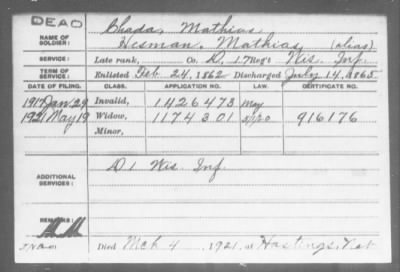 DEAD
NAME OF SOLDIER: Chada, Mathias
Hesman, Mathias (alias)
SERVICE: Late rank, Co. D, 17 Reg't Wis. Inf.
TERM OF SERVICE: Enlisted Feb. 24, 1862 Discharged July 14, 1865
DATE OF FILING. CLASS. APPLICATION NO. LAW. CERTIFICATE NO.
1917 Jan 29 Invalid, 1426473 May
1921 May 19 Widow, 1174301 5/1/20 916176
Minor,
ADDITIONAL SERVICES: D 1 Wis. Inf.
REMARKS:
Died Mch 4, 1921, at Hastings, Neb